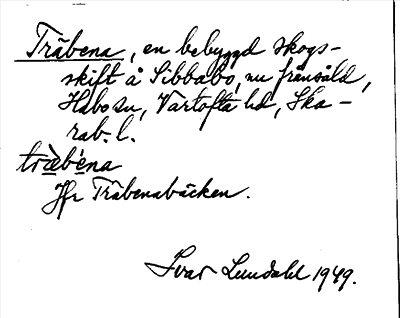 Träbena, en bebyggd skogs-
skift å Sibbabo, nu frånsåld,
Habo sn, Vartofta hd, Ska-
rab. l.
træbena
Jfr Träbenabäcken.
Ivar Lundahl 1949.